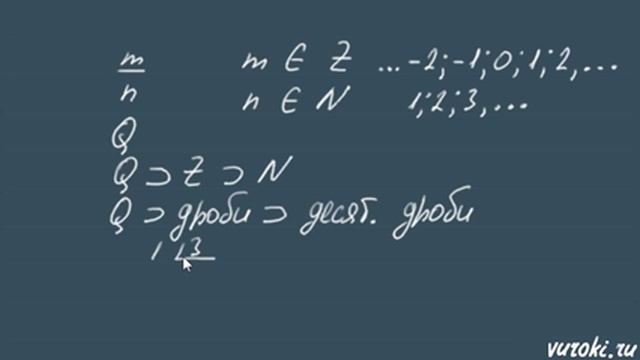 m/n m ∈ Z ...-2;-1;0;1;2,...
n ∈ N 1;2;3,...
Q
Q ⊃ Z ⊃ N
Q ⊃ дроби ⊃ десят. дроби
1 13
vuroki.ru